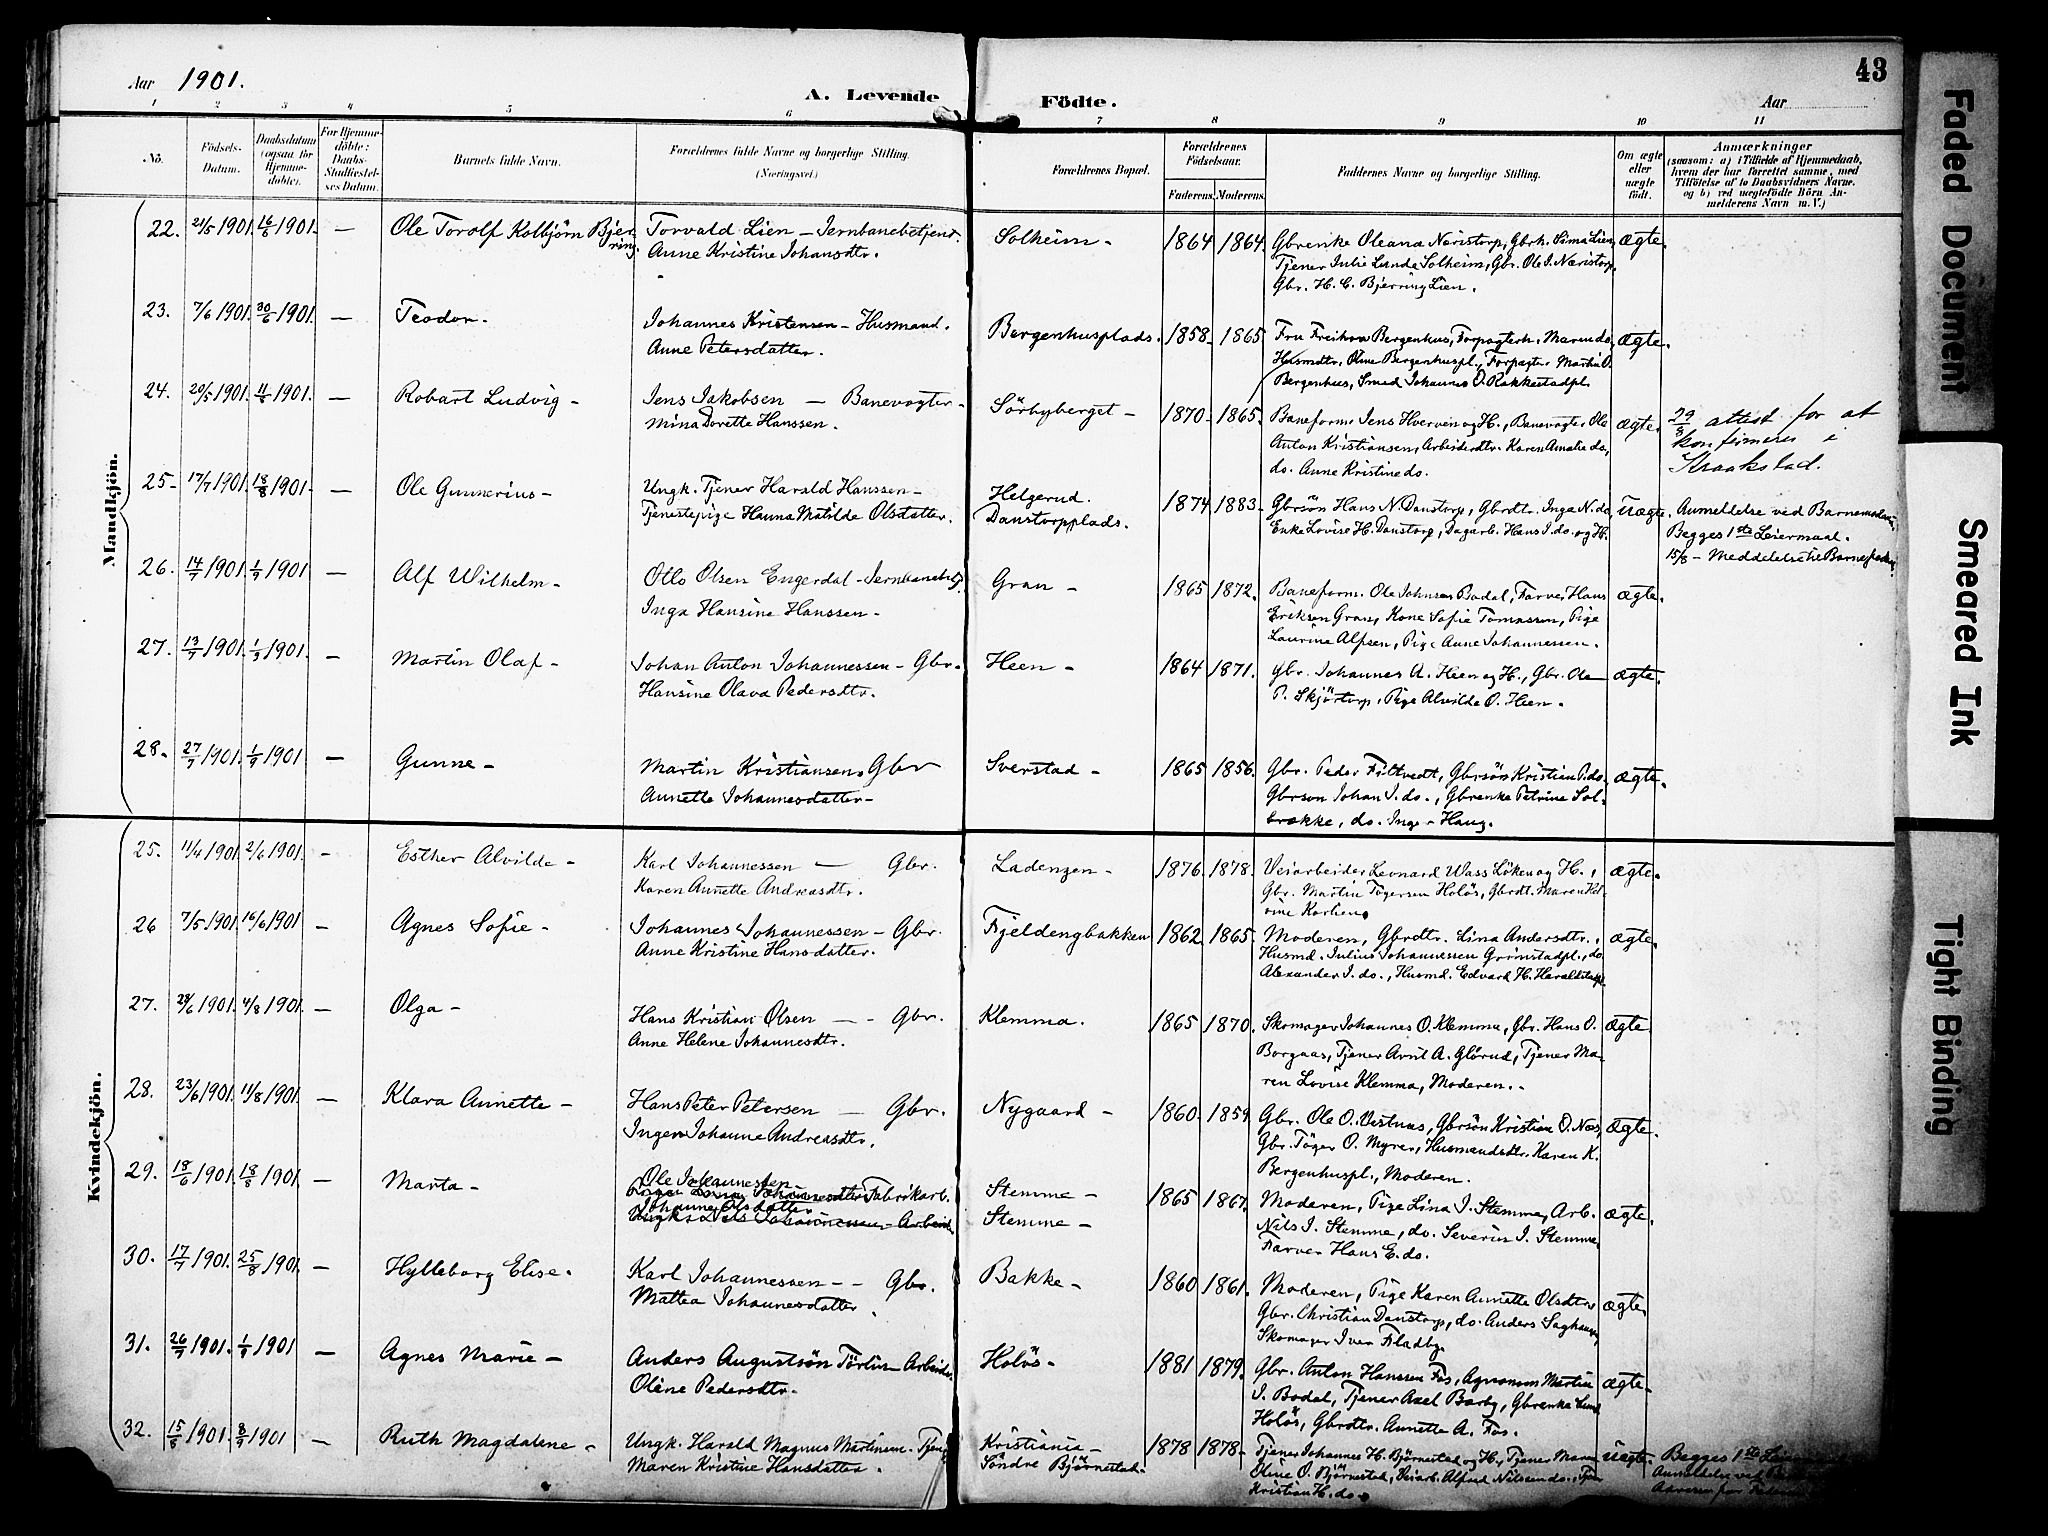 Aar 1901.
A. Levende Födte.
Aar
43
1 2 3 4 5 6 7 8 9 10 11
No.
Födsels-Datum.
Daabsdatum (ogsaa for Hjemmedöbte).
For Hjemmedöbte: Daabs-Stadfæstelses Datum.
Barnets fulde Navn.
Forældrenes fulde Navne og borgerlige Stilling. (Næringsvei.)
Forældrenes Bopæl.
Forældrenes Födselsaar.
Faderens. Moderens.
Faddernes Navne og borgerlige Stilling.
Om ægte eller uægte födt.
Anmærkninger
(saasom: a) i Tilfælde af Hjemmedaab,
hvem der har forrettet samme, med
Tilföielse af to Daabsvidners Navne.
og b) ved uægtefödte Börn An-
melderens Navn m. V.)
Mandkjön.
22. 21/5 1901. 16/6 1901. — Ole Torolf Kolbjörn Bjerring. Torvald Lien — Jernbanebetjent. Solheim - 1864 1864 Gbrenke Oleana Næristorp, Gbrk. Sima Lien, ægte.
Anne Kristine Johansdtr. Tjener Julie Lunde Solheim, Gbr. Ole I. Næristorp,
Gbr. H. C. Bjerring Lien.
23. 7/6 1901. 30/6 1901. — Teodor. Johannes Kristensen - Husmand. Bergenhusplads. 1858 - 1865 Fru Bergenhus, Forpagterk. Maren do, ægte.
Anne Petersdatter. Husmdtr. Oline Bergenhuspl., Forpagter Martin O.
Bergenhus, Smed Johannes O. Rakkestadpl.
24. 20/5 1901. 1901. — Robart Ludvig - Jens Jakobsen — Banevogter - Sörbyberget - 1870 - 1865. Baneform. Jens Hverven og H., Banevogter Ole ægte. 29/8 attest for at
Mina Dorette Hanssen. Anton Kristiansen, Arbeiderdtr. Karen Amalie do, konfirmeres i
do. Anne Kristine do. Kraakstad.
25 - 17/7 1901. 18/8 1901. — Ole Gunnerius - Ungk. Tjener Harald Hanssen - Helgerud. 1874 1883. Gbrsön Hans N. Danstorp, Gbrdtr. Inga N. do, Uægte. Anmeldelse ved Barnemoderen,
Tjenestepige Hanna Matilde Olsdatter. Danstorpplads. Enke Lovise H. Danstorp, Dagarb. Hans I. do. og H. Begges 1ste Leiermaal.
15/8 - Meddelelse til Barnefader.
26. 14/7 1901. 1/9 1901 — Alf Wilhelm - Otto Olsen Engerdal - Jernbanebetj. Gran - 1865 1872. Baneform. Ole Johnsen Bodal, Farver Hans ægte.
Inga Hansine Hanssen - Eriksen Gran, Kone Sofie Tomassen, Pige
Laurine Alfsen, Pige Anne Johannessen.
27. 13/7 1901. 1/9 1901. - Martin Olaf - Johan Anton Johannessen - Gbr. Heen - 1864 1871. Gbr. Johannes A. Heen og H., Gbr. Ole ægte.
Hansine Olava Pedersdtr. P. Skjörtorp, Pige Alvilde O. Heen.
28. 27/7 1901. 1/9 1901 — Gunne - Martin Kristiansen. Gbr Sverstad - 1865 1856. Gbr. Peder Filtvedt, Gbrsön Kristian P. do. ægte.
Annette Johannesdatter - Gbrsön Johan I. do., Gbrenke Petrine Sol-
brække, do. Inger Haug.
Kvindekjön.
25. 11/4 1901 2/6 1901. - Esther Alvilde - Karl Johannessen — Gbr. Ladenzen - 1876. 1878. Veiarbeider Leonard Wass Löken og H., ægte.
Karen Annette Andreasdtr. Gbr. Martin Tögersen Holös, Gbrdt. Maren
26 7/5 1901 16/6 1901 - Agnes Sofie - Johannes Johannessen - Gbr. Fjeldengbakken 1862 1865. Moderen, Gbrdtr. Lina Andersdtr., ægte.
Anne Kristine Hansdatter. Husmd. Julius Johannessen Grimstadpl., do.
Alexander I. do., Husmd. Edvard H. Haraldstadpl.
27. 28/6 1901. 4/8 1901. — Olga - Hans Kristian Olsen — - Gbr. Klemma. 1865 1870. Skomager Johannes O. Klemma, Gbr. Hans O. ægte
Anne Helene Johannesdtr. Borgaas, Tjener Arnt A. Glörud, Tjener Ma-
ren Lovise Klemma, Moderen. -
28. 23/6 1901 11/8 1901. — Klara Annette - Hans Peter Petersen — Gbr. Nygaard - 1860. 1859. Gbr. Ole O. Vestnæs, Gbrsön Kristian O. Næs, ægte.
Inger Johanne Andreasdtr. Gbr. Töger O. Myrer, Husmandsdtr. Karen K.
Bergenhuspl., Moderen.
29. 18/6 1901. 18/8 1901. — Marta - Ole Johannessen Fabrikarb. Stemme - 1865 1867. Moderen, Pige Lina I. Stemme, Arb. ægte.
Johanne Olsdatter Stemme - Nils I. Stemme, do. Severin I. Stemme,
Farver Hans E. do.
30. 17/7 1901. 25/8 1901. - Hylleborg Elise. Karl Johannessen - - Gbr. Bakke - 1860 1861. Moderen, Pige Karen Annette Olsdtr. ægte
Mattea Johannesdatter. Gbr. Christian Danstorp, do. Anders Saghaugen,
Skomager Iver Fladby.
31. 26/7 1901. 1/9 1901 - Agnes Marie - Anders Augustsön Törlin - Arbeider. Holös - 1881 1879. Gbr. Anton Hanssen Fos, Agronom Martin ægte -
Oline Pedersdtr. I. Bodal, Tjener Axel Barby, Gbrenke
Holös, Gbrdtr. Annette A. Fos.
32. 15/6 1901. 8/9 1901 - Ruth Magdalene - Ungk. Harald Magnus Martinsen. Tjen. Kristiania - 1878 1878 - Tjener Johannes H. Björnestad og H., Tjener Maren uægte. Begges 1ste
Maren Kristine Hansdatter. Söndre Björnestad. Oline O. Björnestad, Veiarb. Alfred Nilsen do., Tjen Anmeldelse ved
Kristian H. do.
Faded Document
Smeared Ink
Tight Binding